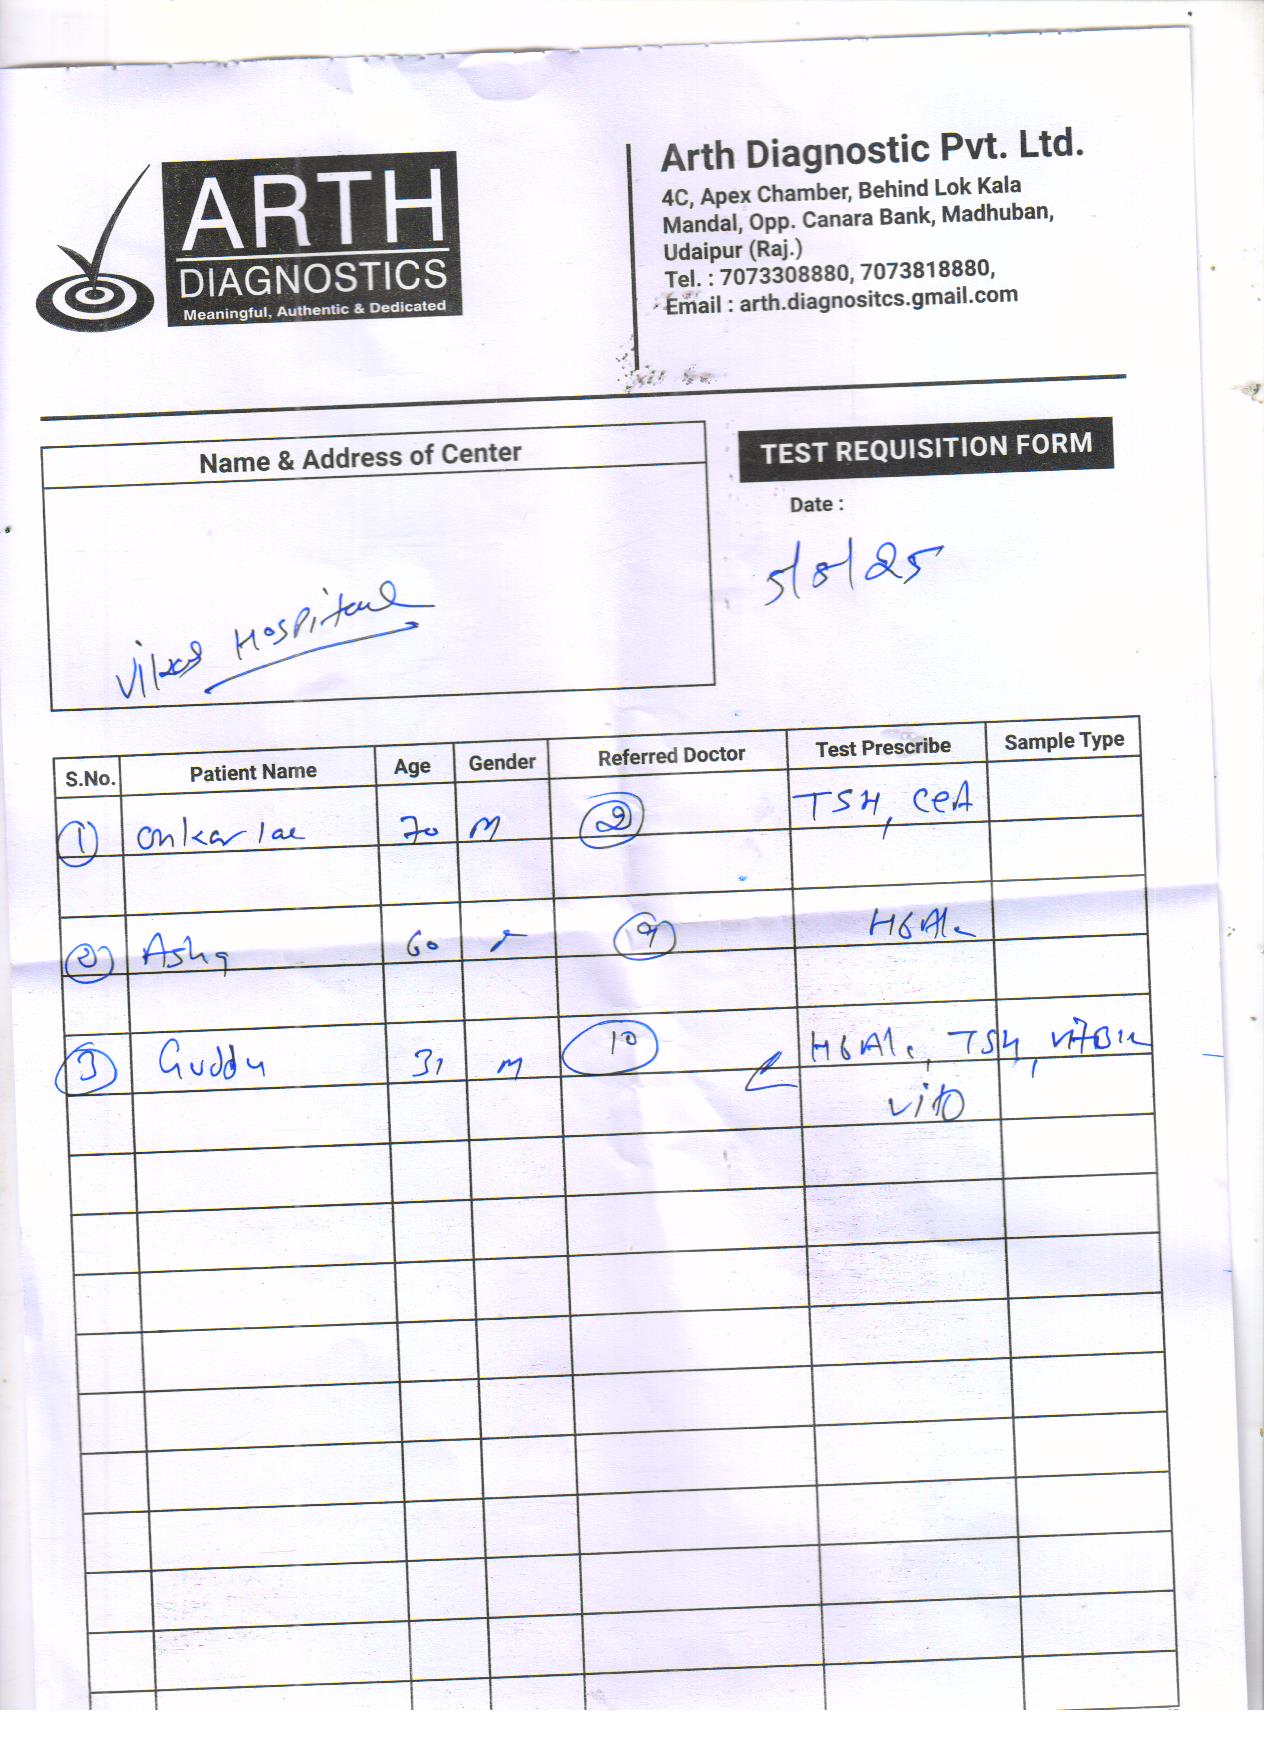 ARTH
DIAGNOSTICS
Meaningful, Authentic & Dedicated
Arth Diagnostic Pvt. Ltd.
4C, Apex Chamber, Behind Lok Kala
Mandal, Opp. Canara Bank, Madhuban,
Udaipur (Raj.)
Tel. : 7073308880, 7073818880,
Email : arth.diagnositcs.gmail.com
Name & Address of Center
Hospital
TEST REQUISITION FORM
Date :
5/8/25
S.No. Patient Name Age Gender Referred Doctor Test Prescribe Sample Type
1 Onkar lal 70 M 2 TSH, CEA
2 60 F 9 HbA1c
3 Guddu 31 M 10 HbA1c, TSH, vitB12
vitD